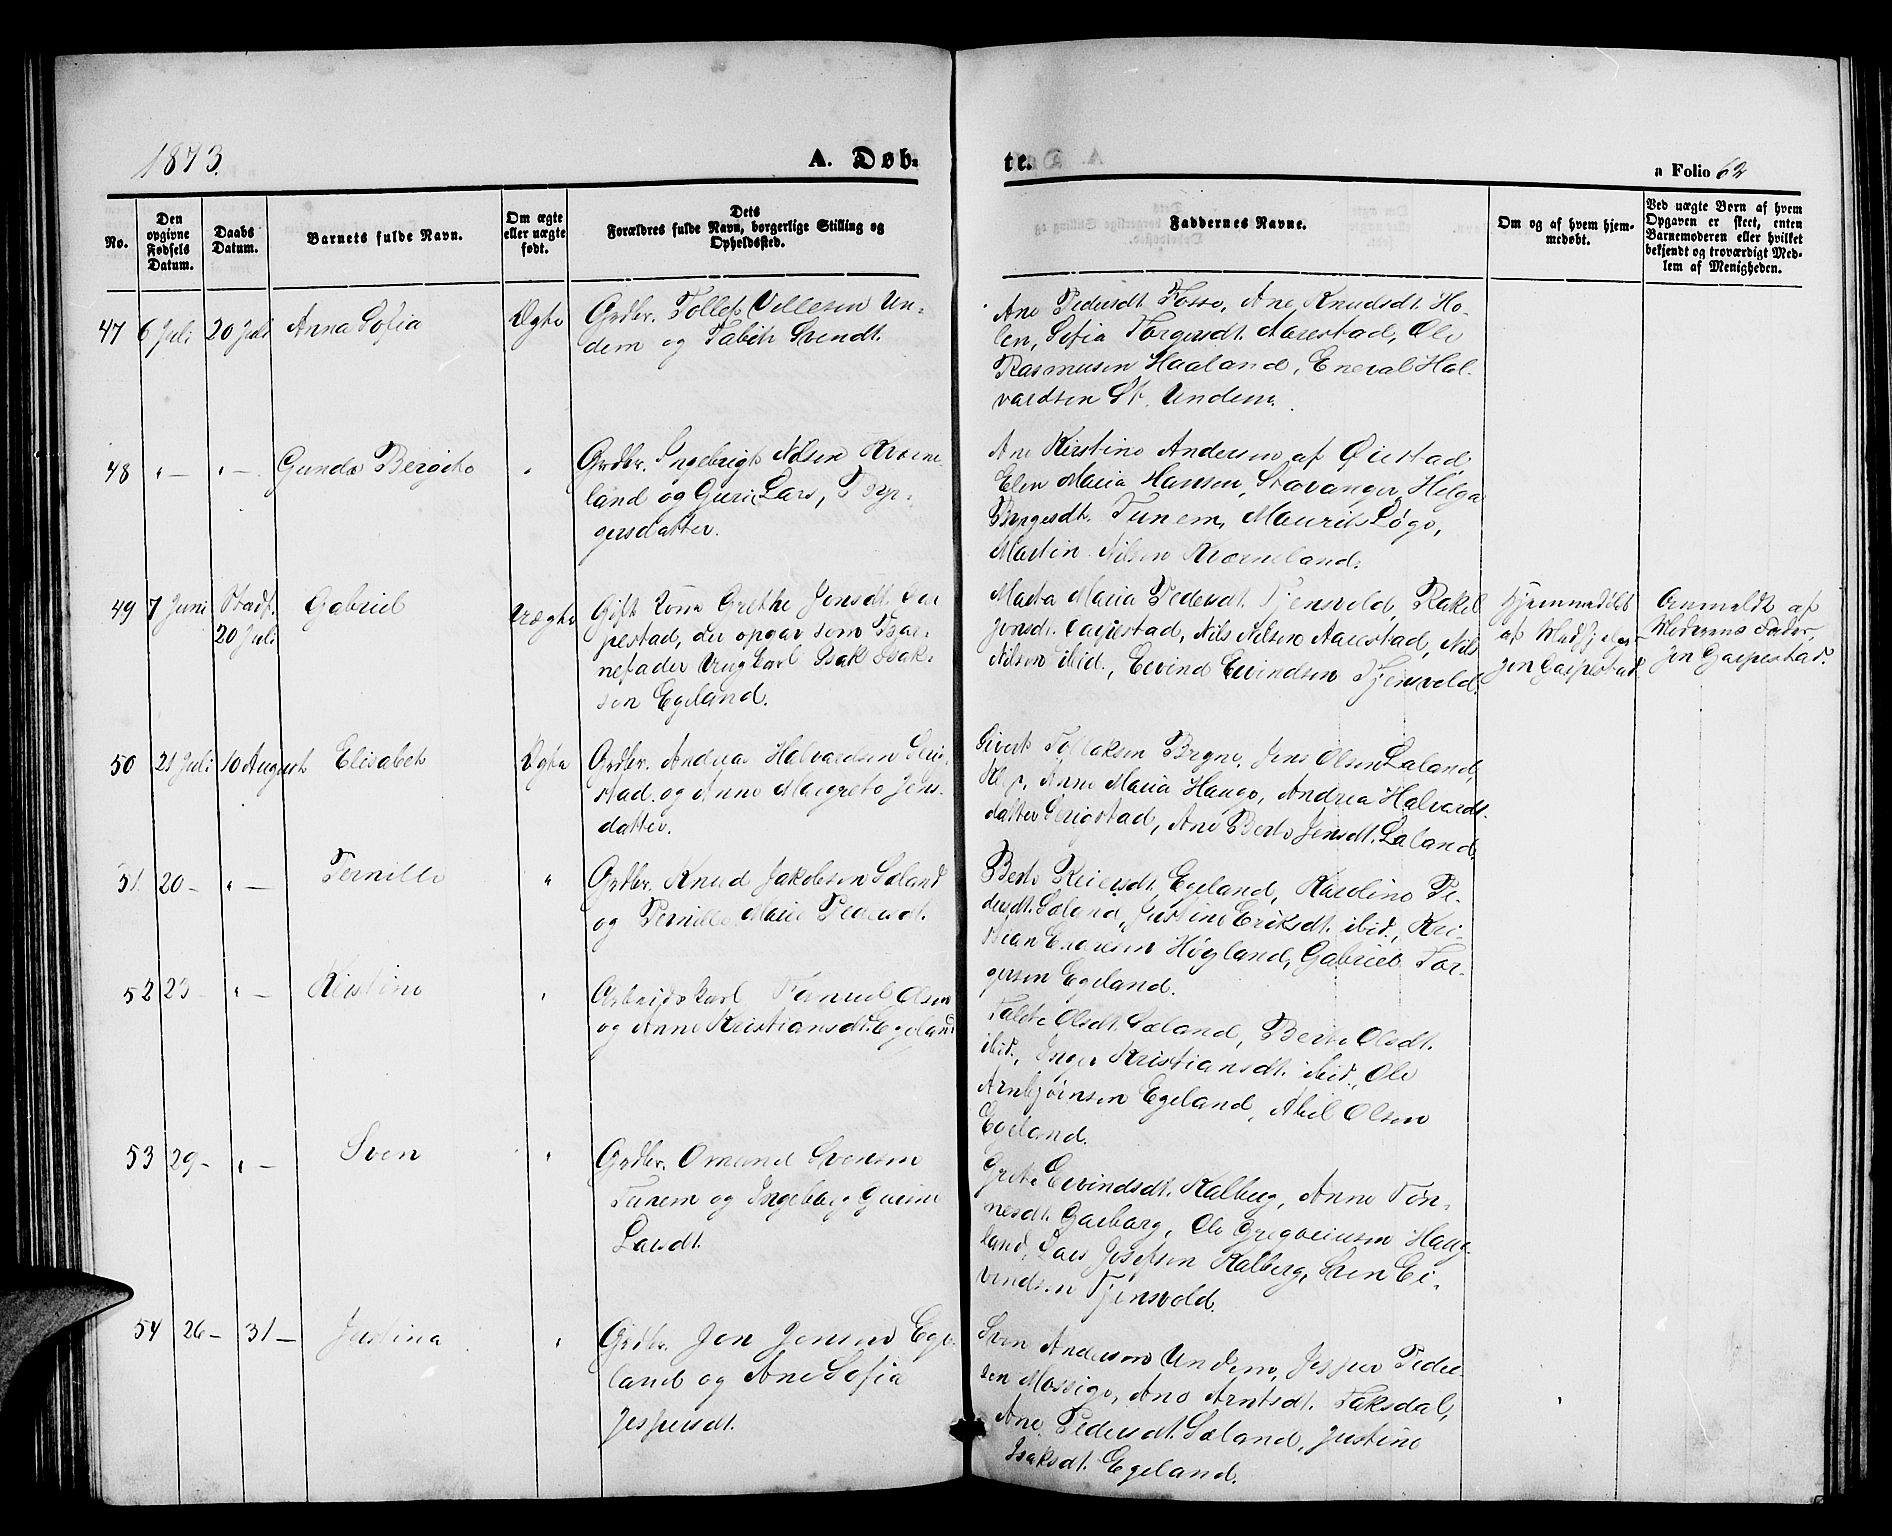 1873.
A. Døb-
te.
a Folio 62
No.
Den
opgivne
Fødsels
Datum.
Daabs
Datum.
Barnets fulde Navn.
Om ægte
eller uægte
født.
Dets
Forældres fulde Navn, borgerlige Stilling og
Opholdssted.
Faddernes Navne.
Om og af hvem hjem-
medøbt.
Ved uægte Børn af hvem
Opgaven er skeet, enten
Barnemoderen eller hvilket
bekjendt og troværdigt Med-
lem af Menigheden.
47 6 Juli 20 Juli Anna Sofia Ægte
Grdbr. Tollef Villesen Un-
dem og Tabite Svendt.
Ane Pedersdt. Fosse, Ane Knudsdt. Ho-
len, Sofia Torgersdt. Aarestad, Ole
Rasmusen Haaland, Eneval Hal-
vardsen St. Undem.
48 " — " — Gunda Bergite "
Grdbr. Ingebrigt Nilsen Kværne-
land og Guri Lars, Byr-
gersdatter.
Ane Kirstine Andersen af Øiestad
Elen Maria Hansen, Stavanger, Helga
Byrgesdt. Tunem, Maurits Løge,
Martin Nilsen Kværneland.
49 7 Juni Stadf. 20 Juli Gabriel Uægte
Gift Kone Grethe Jensdt. Gar
pestad, der opgav som Bar-
nefader Ungkarl Isak Isak-
sen Egeland.
Marta Maria Pedersdt. Tjensvold, Rakel
Jonsdt. Garpestad, Nils Nilsen Aarestad, Nils
Nilsen ibid., Eivind Eivindsen Tjensvold.
Hjemmedøbt
af
Jen Garpestad
Anmeldt af
Moderens Fader,
Jen Garpestad.
50 21 Juli 10 August Elisabet Ægte
Grdbr. Andreas Halvardsen Seri-
stad og Anne Margrete Jens-
datter.
Sivert Tollaksen Bryne, Jens Olsen Laland,
Klep, Anne Maria Hauge, Andrea Halvards-
datter Serigstad, Ane Berte Jensdt. Laland.
51 20 — " — Pernille "
Grdbr. Knud Jakobsen Sæland
og Pernille Marie Pedersdt.
Berte Reiersdt. Egeland, Karoline Pe-
dersdt. Sæland, Justine Eriksdt. ibid., Kri-
stian Enoksen Høyland, Gabriel Tor-
gersen Egeland.
52 23 — " — Kirstine "
Arbeidskarl Samuel Olsen
og Anne Kristiansdt. Egeland
Talete Olsdt. Sæland, Berte Olsdt.
ibid., Inger Kristiansdt. ibid., Ole
Arnbjørnsen Egeland, Abel Olsen
Egeland.
53 29 — " — Sven "
Grdbr. Omund Svensen
Tunem og Ingeborg Gurine
Larsdt.
Grete Eivindsdt. Kalberg, Anne Tøn-
nesdt. Garborg, Ole Gregoriusen Haug-
land, Lars Josefsen Kalberg, Sven Ei-
vindsen Tjensvold.
54 26 — 31 — Justina "
Grdbr. Jon Jonsen Ege-
land og Ane Sofia
Jespersdt.
Sven Andersen Undem, Jesper Peder-
sen Mossige, Ane Arntsdt. Taksdal,
Ane Pedersdt. Sæland, Justine
Isaksdt. Egeland.